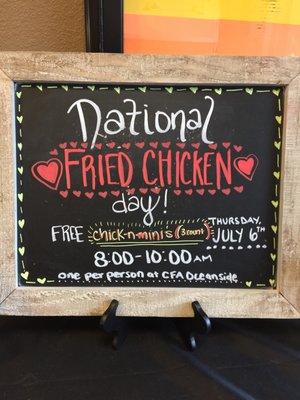 National
FRIED CHICKEN
day!
FREE chick-n-minis (3 count) THURSDAY, JULY 6TH
8:00-10:00 AM
one per person at CFA Oceanside